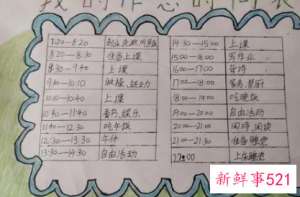 我的作息时间表
7:20—8:20 起床洗漱吃饭
8:20—8:30 准备上课
8:30—9:10 上课
9:10—10:10 做操、运动
10:10—10:40 上课
10:40—11:40 音乐、娱乐
11:40—12:30 吃午饭
12:30—13:30 午休
13:30—14:30 自由活动
14:30—15:00 上课
15:00—16:00 写作业
16:00—17:00
17:00—18:00
18:00—19:00 吃晚饭
19:00—20:00 自由活动
20:00—21:00 阅读
21:00 准备睡觉
22:00 上床睡觉
新鲜事521